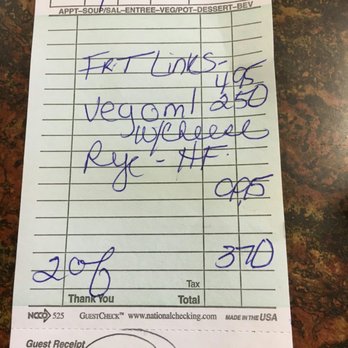 APPT-SOUP/SAL-ENTREE-VEG/POT-DESSERT-BEV
FRT LINKS- 4,95
Vegoml 250
w/cheese
Rye - HF.
0,95
2 of 370
Tax
Thank You Total
NCCO 525 GUESTCHECK™ www.nationalchecking.com MADE IN THE USA
Guest Receipt